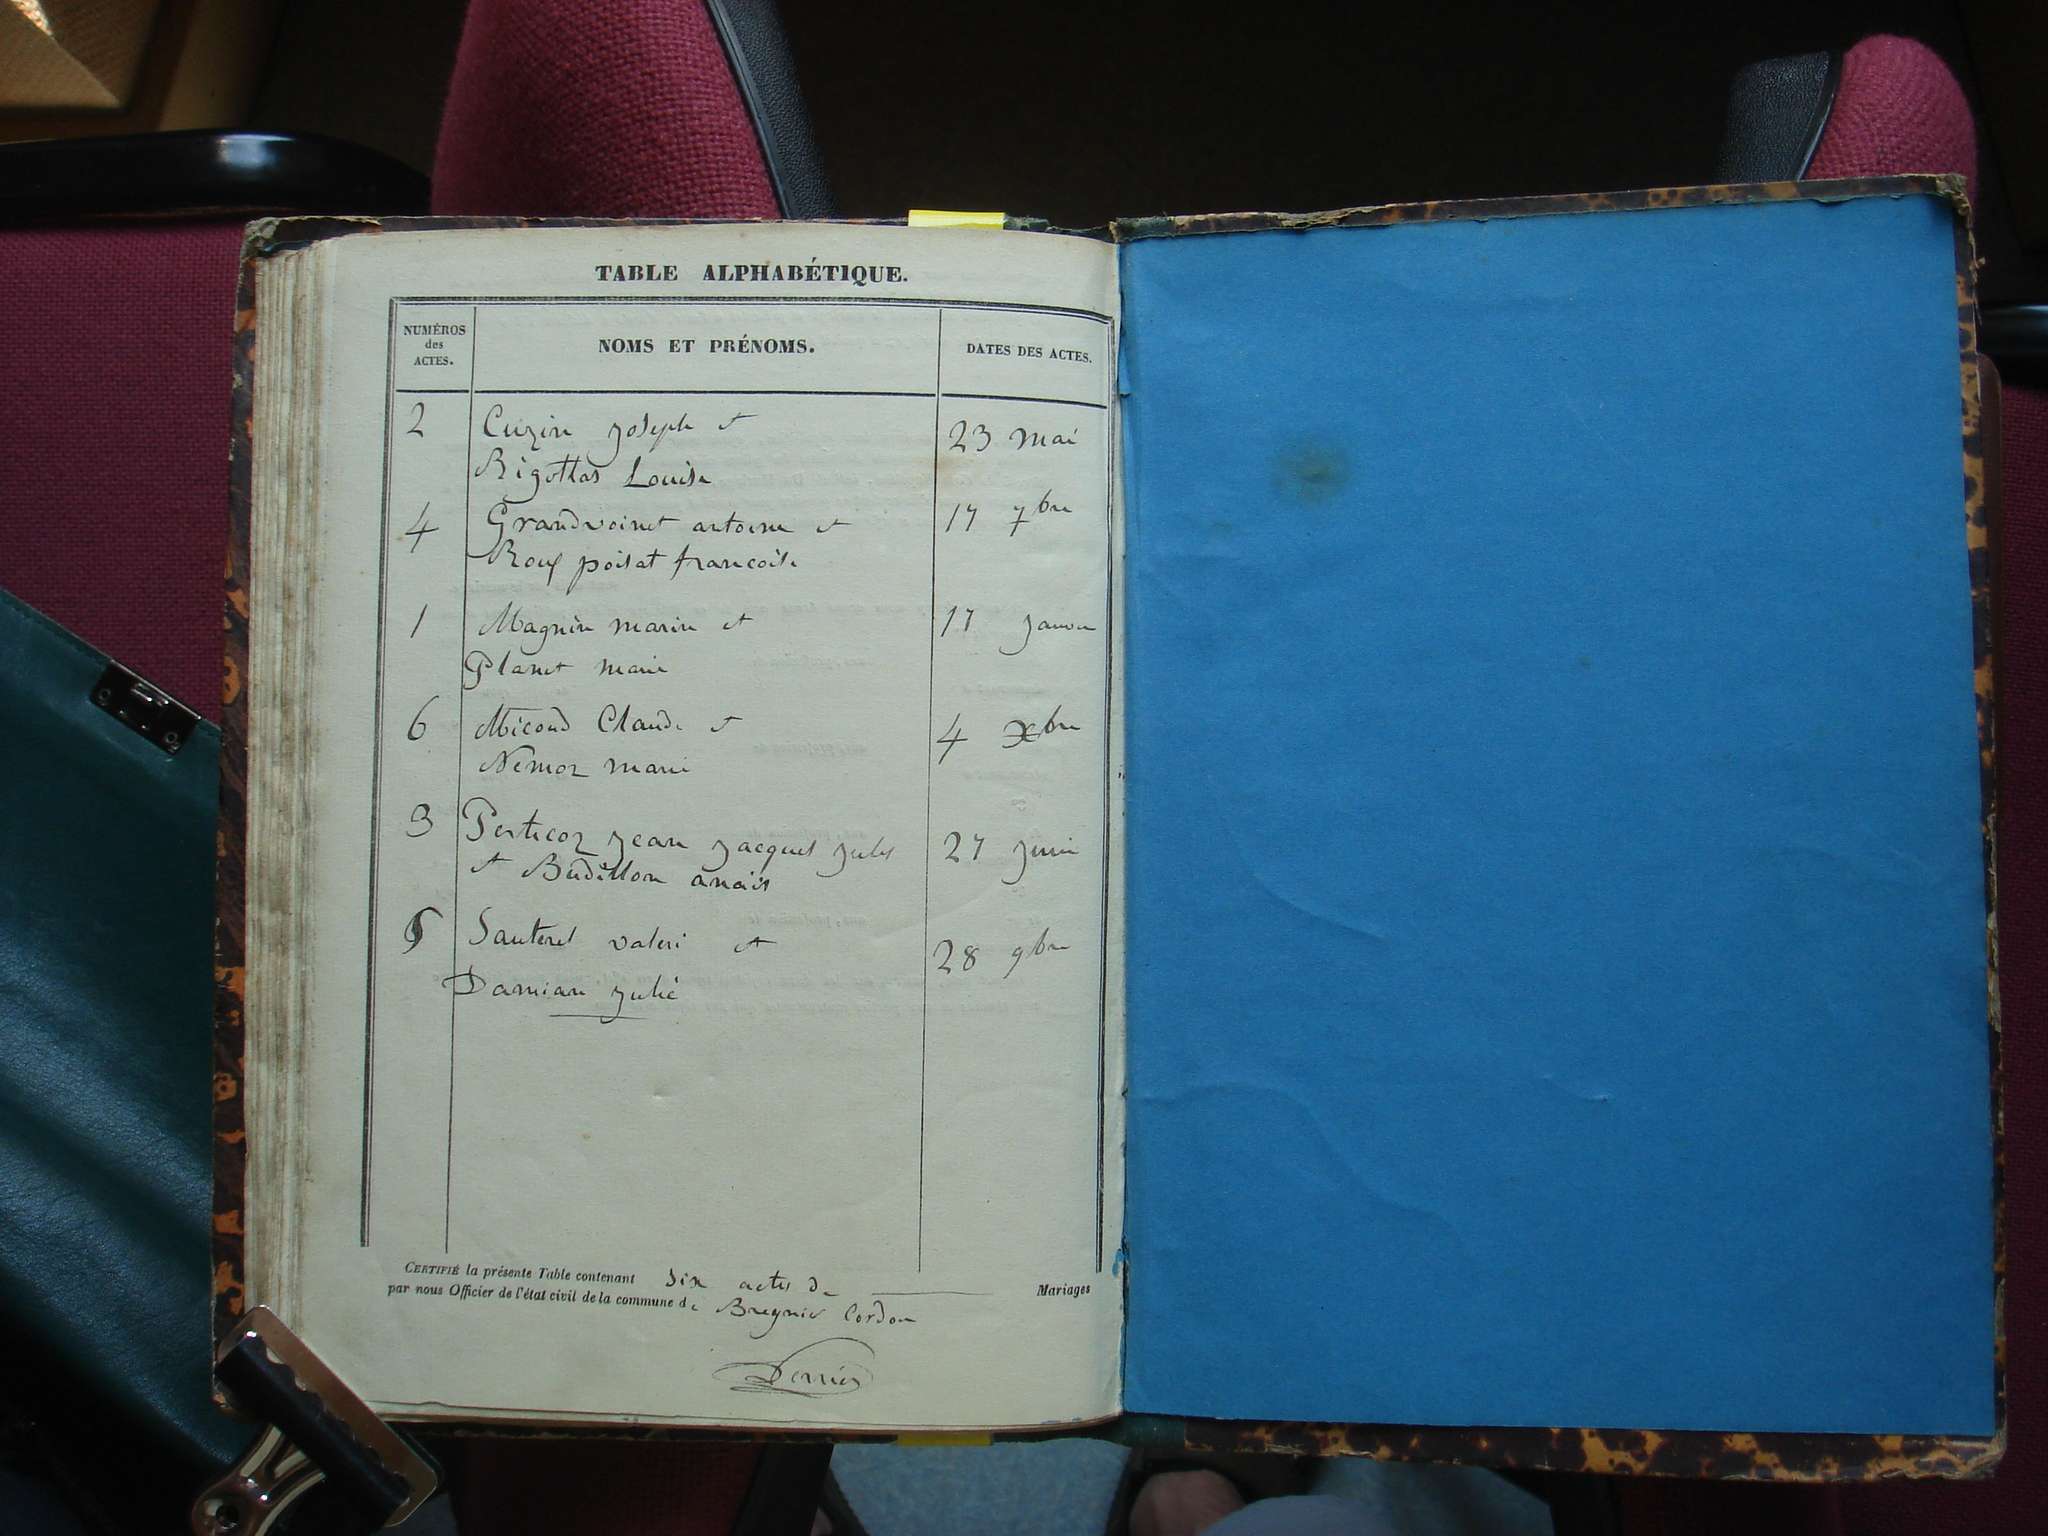 TABLE ALPHABÉTIQUE.
NUMÉROS
des
ACTES.
NOMS ET PRÉNOMS.
DATES DES ACTES.
2 Cuzin joseph et 23 mai
Rigollas Louise
4 Grandvoinet antoine et 17 7bre
Roux poisat francoise
1 Magnin marin et 17 janvier
Planet marie
6 Micoud Claude et 4 xbre
Nemoz marie
3 Perticoz jean jacques jules 27 juin
et Budillon anais
5 Sauterel valeri et 28 9bre
Damian julie
CERTIFIÉ la présente Table contenant six actes de Mariages
par nous Officier de l'état civil de la commune de Bregnier Cordon
Perrier